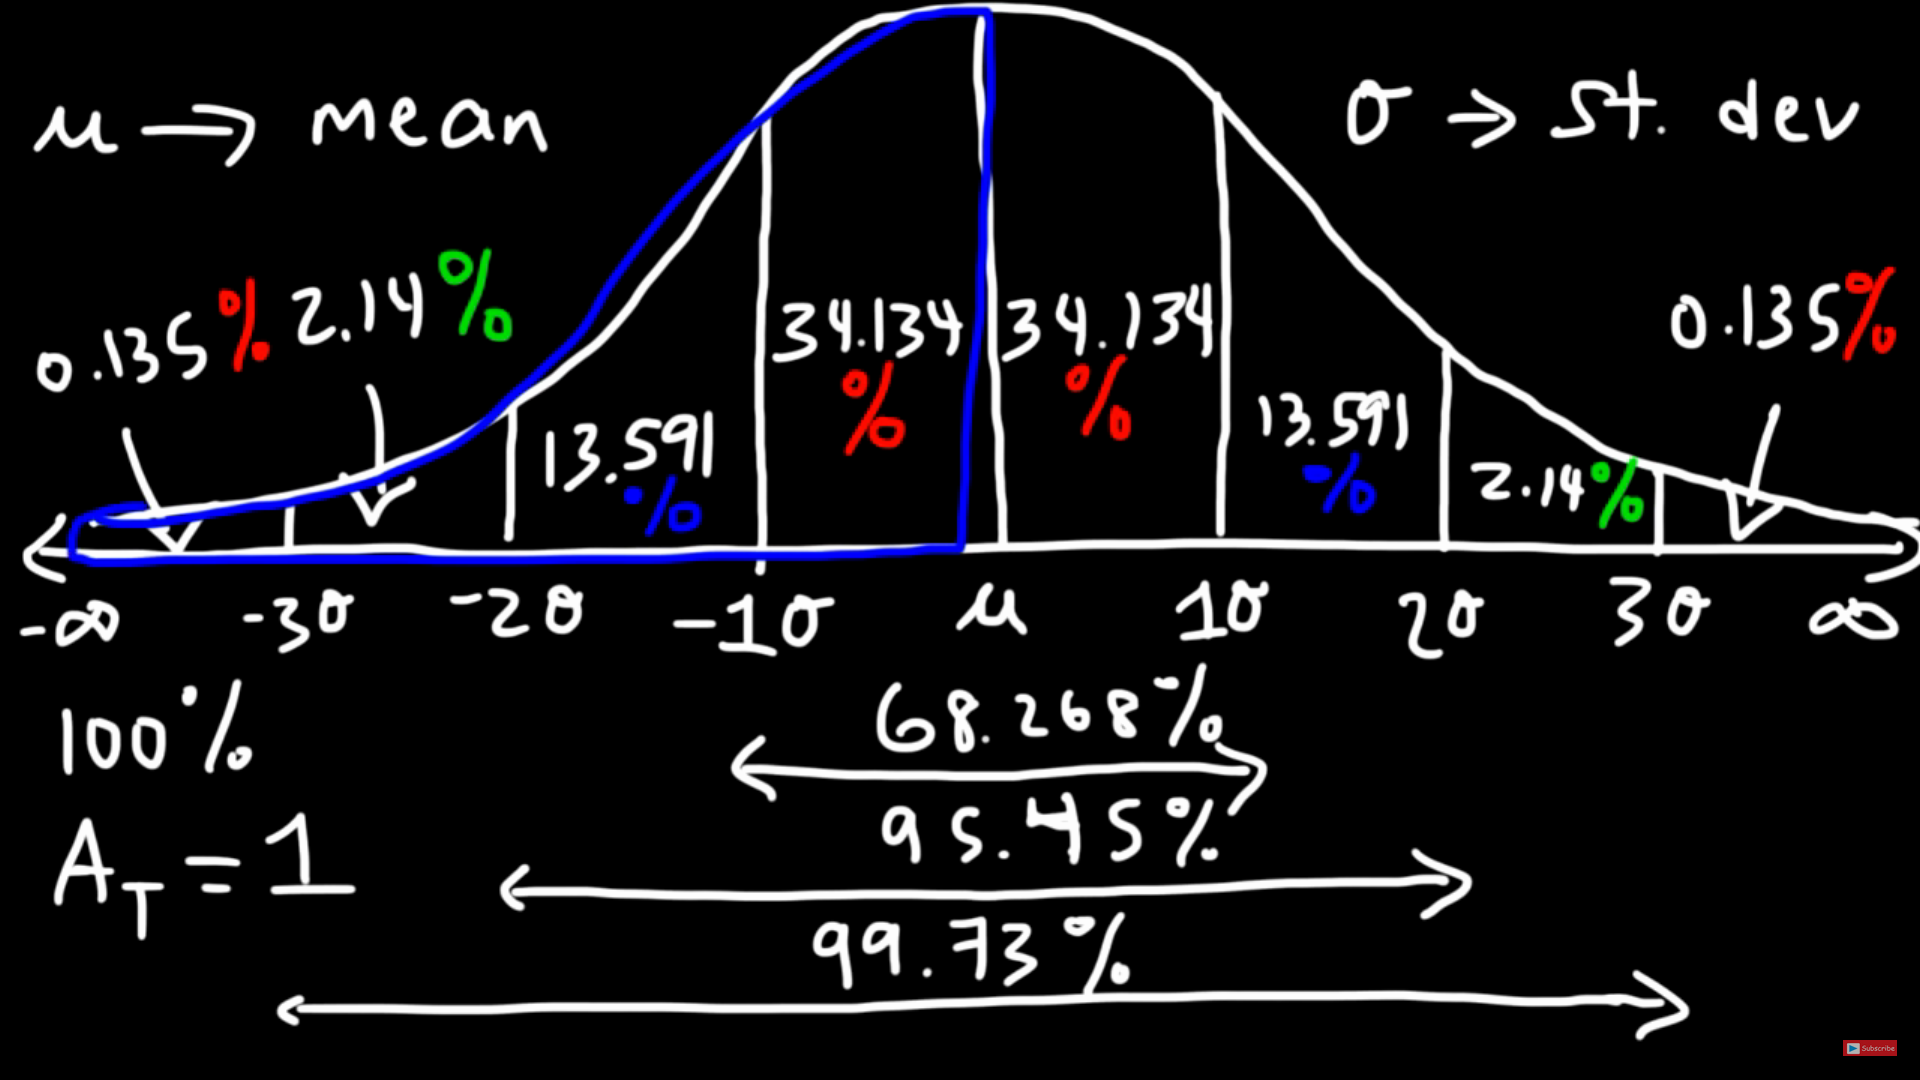 μ → mean
σ → st. dev
0.135% 2.14% 13.591% 34.134% 34.134% 13.591% 2.14% 0.135%
-∞ -3σ -2σ -1σ μ 1σ 2σ 3σ ∞
100%
68.268%
A_T = 1
95.45%
99.73%
Subscribe